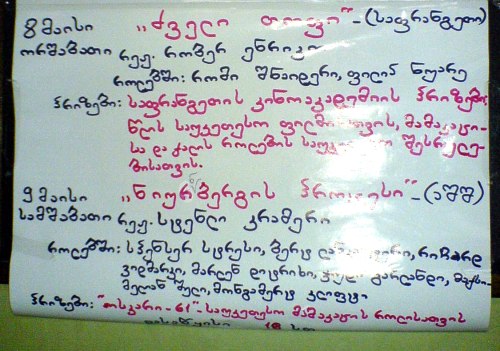 8 მაისი „ძველი თოფი“-(საფრანგეთი)
ორშაბათი რეჟ. რობერ ენრიკო
როლებში: რომი შნაიდერი, ფილიპ ნუარე
პრიზები: საფრანგეთის კინოაკადემიის პრიზები
წლის საუკეთესო ფილმისთვის, მამაკაცი-
სა და ქალის როლების საუკეთესო შესრულე-
ბისათვის.
9 მაისი „ნიურბერგის პროცესი“-(აშშ)
სამშაბათი რეჟ. სტენლი კრამერი
როლებში: სპენსერ სტრესი, ბერტ ლანკასტერი, რიჩარდ
ვიდმარკი, მარლენ დიტრიხი, ჯუდი გარლანდი, მაქსი-
მელან შელი, მონგომერი კლიფტი
პრიზები: "ოსკარი-61"-საუკეთესო მამაკაცის როლისათვის